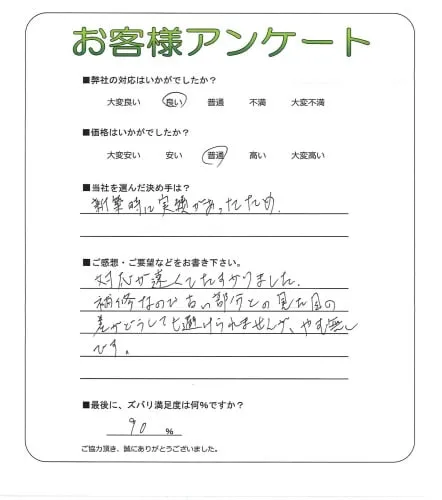 お客様アンケート
■弊社の対応はいかがでしたか?
大変良い 良い 普通 不満 大変不満
■価格はいかがでしたか?
大変安い 安い 普通 高い 大変高い
■当社を選んだ決め手は?
新築時に実績があったため.
■ご感想・ご要望などをお書き下さい。
対応が速くてたすかりました.
補修なので古い部分との見た目の
差がどうしても避けられませんが、やむ無し
です。
■最後に、ズバリ満足度は何%ですか?
90 %
ご協力頂き、誠にありがとうございました。